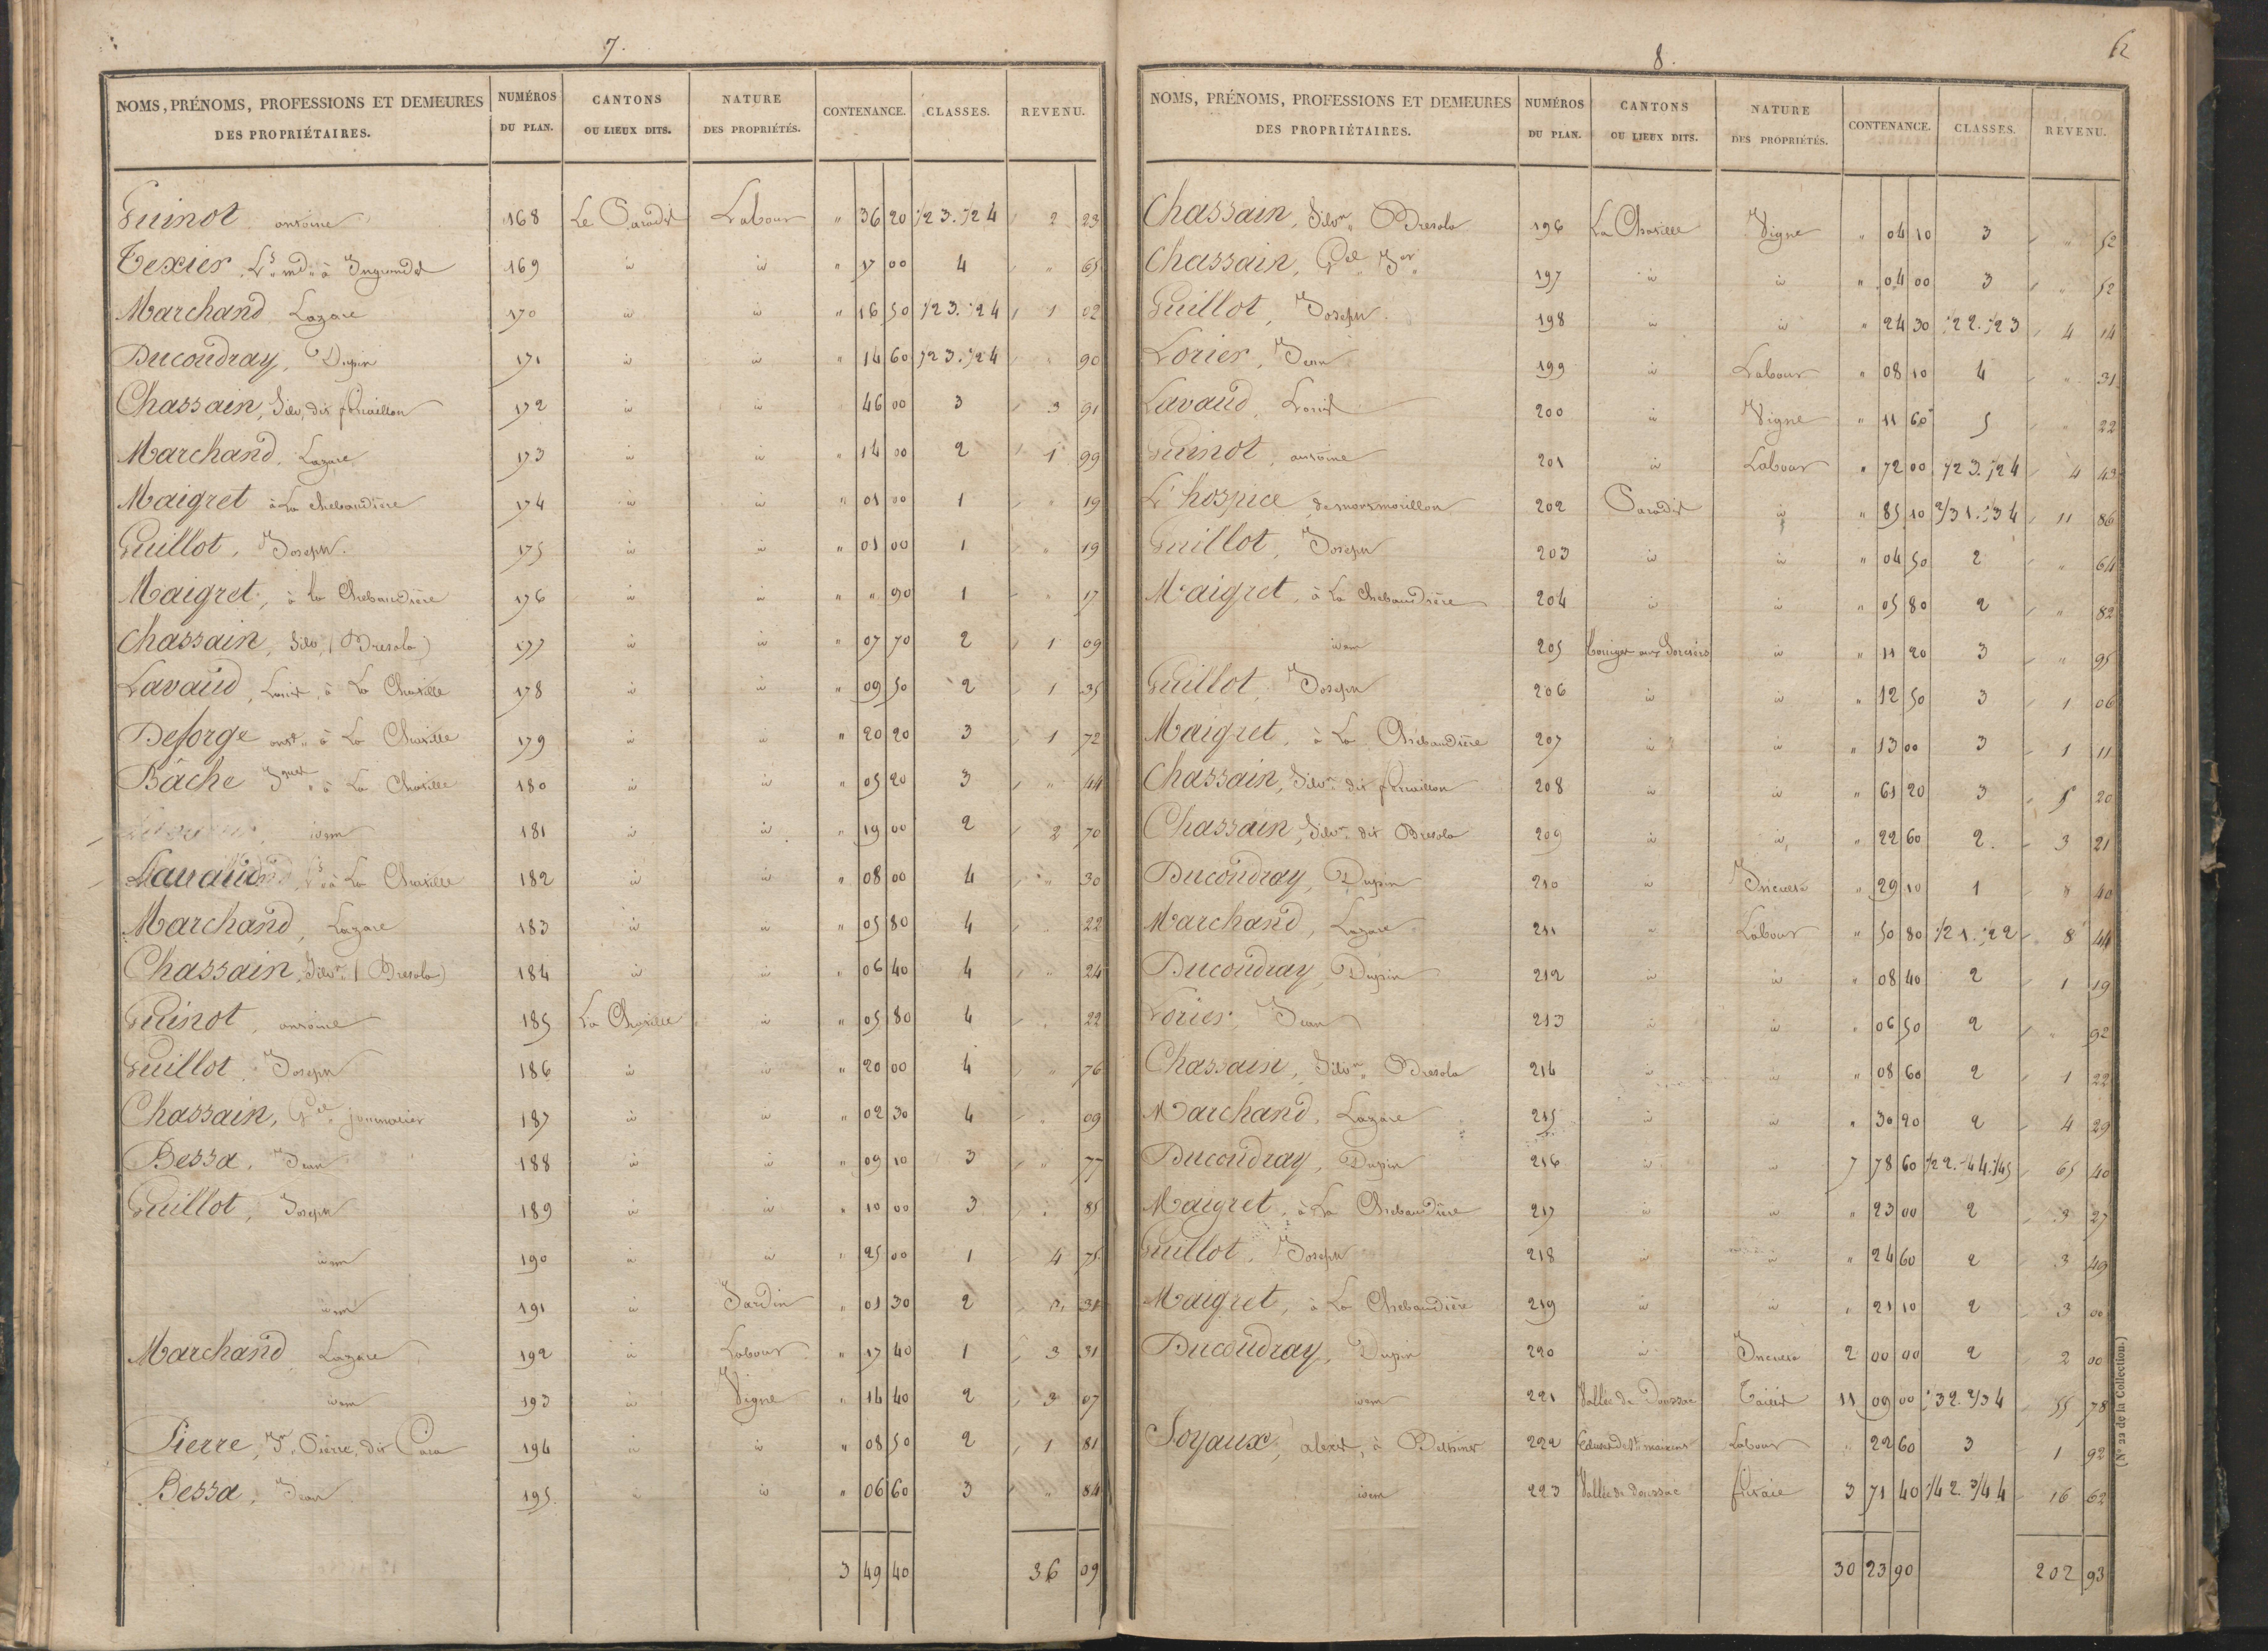 7.
NOMS, PRÉNOMS, PROFESSIONS ET DEMEURES DES PROPRIÉTAIRES. NUMÉROS DU PLAN. CANTONS OU LIEUX DITS. NATURE DES PROPRIÉTÉS. CONTENANCE. CLASSES. REVENU.
Guinot antoine 168 Le Paradis Labour " 36 20 1/2 3. 1/2 4 2 23
Texier, md à 169 id id " 17 00 4 " 65
Marchand Lazare 170 id id " 16 50 1/2 3. 1/2 4 1 02
Ducoudray, Dupin 171 id id " 14 60 1/2 3. 1/2 4 " 90
Chassain, Silv, dit 172 id id 46 00 3 3 91
Marchand, Lazare 173 id id " 14 00 2 1 99
Maigret à La chebaudière 174 id id " 01 00 1 " 19
Guillot, Joseph 175 id id " 01 00 1 " 19
Maigret, à La Chebaudière 176 id id " " 90 1 " 17
Chassain, Silv, (Bresola) 177 id id " 07 70 2 1 09
Lavaud, Louis, à La 178 id id " 09 50 2 1 35
Deforge à La 179 id id " 20 20 3 1 72
Bâche à La 180 id id " 05 20 3 " 44
idem 181 id id " 19 00 2 2 70
Lavaud à La 182 id id " 08 00 4 " 30
Marchand, Lazare 183 id id " 05 80 4 " 22
Chassain, Silvn (Bresola) 184 id id " 06 40 4 " 24
Guinot, antoine 185 La id " 05 80 4 " 22
Guillot, Joseph 186 id id " 20 00 4 " 76
Chassain, journalier 187 id id " 02 30 4 " 09
Bessa, Jean 188 id id " 09 10 3 " 77
Guillot, Joseph 189 id id " 10 00 3 " 85
idem 190 id id " 25 00 1 4 75
idem 191 id Jardin " 01 30 2 " 31
Marchand Lazare 192 id Labour " 17 40 1 3 31
idem 193 id Vigne " 14 40 2 3 07
Pierre, Jn Pierre, dit Cara 194 id id " 08 50 2 1 81
Bessa, Jean 195. id id " 06 60 3 " 84
3 49 40 36 09
8.
62
NOMS, PRÉNOMS, PROFESSIONS ET DEMEURES DES PROPRIÉTAIRES. NUMÉROS DU PLAN. CANTONS OU LIEUX DITS. NATURE DES PROPRIÉTÉS. CONTENANCE. CLASSES. REVENU.
Chassain, Silvn Bresola 196 La Vigne " 04 10 3 " 52
Chassain, 197 id id " 04 00 3 " 52
Guillot, Joseph 198 id id " 24 30 1/2 2. 1/2 3 4 14
Lorier, Jean 199 id Labour " 08 10 4 " 31
Lavaud, Louis 200 id Vigne " 11 60 5 " 22
Guinot, antoine 201 id Labour " 72 00 1/2 3. 1/2 4 4 43
L'hospice de montmorillon 202 Paradis id " 85 10 2/3 1. 1/3 4 11 86
Guillot, Joseph 203 id id " 04 50 2 " 64
Maigret, à La chebaudière 204 id id " 05 80 2 " 82
idem 205 aux Sorciers id " 11 20 3 " 95
Guillot, Joseph 206 id id " 12 50 3 1 06
Maigret, à La Chebaudière 207 id id " 13 00 3 1 11
Chassain, Silvn dit 208 id id " 61 20 3 5 20
Chassain, Silvn dit Bresola 209 id id " 22 60 2. 3 21
Ducoudray, Dupin 210 id Inculte " 29 10 1 " 40
Marchand, Lazare 211 id Labour " 50 80 1/2 1. 1/2 2 8 44
Ducoudray, Dupin 212 id id " 08 40 2 1 19
Lorier, Jean 213 id id " 06 50 2 " 92
Chassain, Silvn Bresola 214 id id " 08 60 2 1 22
Marchand, Lazare 215 id id " 30 20 2 4 29
Ducoudray, Dupin 216 id id 7 78 60 65 40
Maigret, à La Chebaudière 217 id id " 23 00 2 3 27
Guillot, Joseph 218 id id " 24 60 2 3 49
Maigret, à La Chebaudière 219 id id " 21 10 2 3 00
Ducoudray, Dupin 220 id Inculte 2 00 00 2 2 00
idem 221 Vallée de Doussac Taillis 11 09 00 1/3 2. 2/3 4 55 78
Soyaux, alexis, à 222 Labour 22 60 3 1 92
idem 223 Vallée de Doussac futaie 3 71 40 1/4 2. 3/4 4 16 62
30 23 90 202 93
(N° 22 de la Collection.)